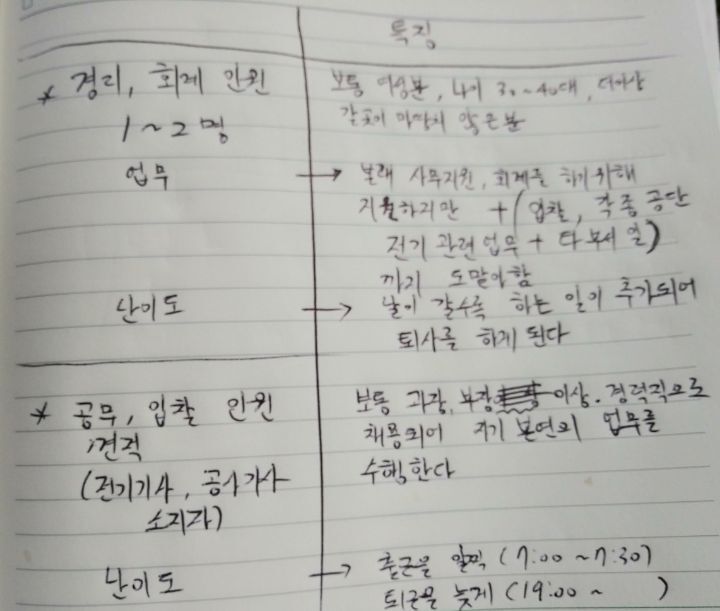 특징
* 경리, 회계 인원
1~2명
보통 여성분, 나이 30~40대, 더이상
갈곳이 마땅치 않은분
업무 → 본래 사무지원, 회계를 하기위해
지원하지만 + (입찰, 각종 공단
전기 관련업무 + 타부서 일)
까지 도맡아함
난이도 → 날이 갈수록 하는 일이 추가되어
퇴사를 하게 된다
* 공무, 입찰 인원
,견적
(전기기사, 공사기사
소지자)
보통 과장, 부장 이상. 경력직으로
채용되어 자기 본연의 업무를
수행한다
난이도 → 출근을 일찍 (7:00 ~ 7:30)
퇴근을 늦게 (19:00 ~ )